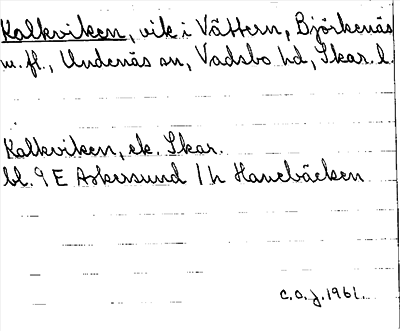 Kalkviken, vik i Vättern, Björkenäs
m. fl., Undenäs sn, Vadsbo hd, Skar. l.
Kalkviken, ek. Skar.
bl. 9 E Askersund 1 h Hanebäcken
c.o.j. 1961.